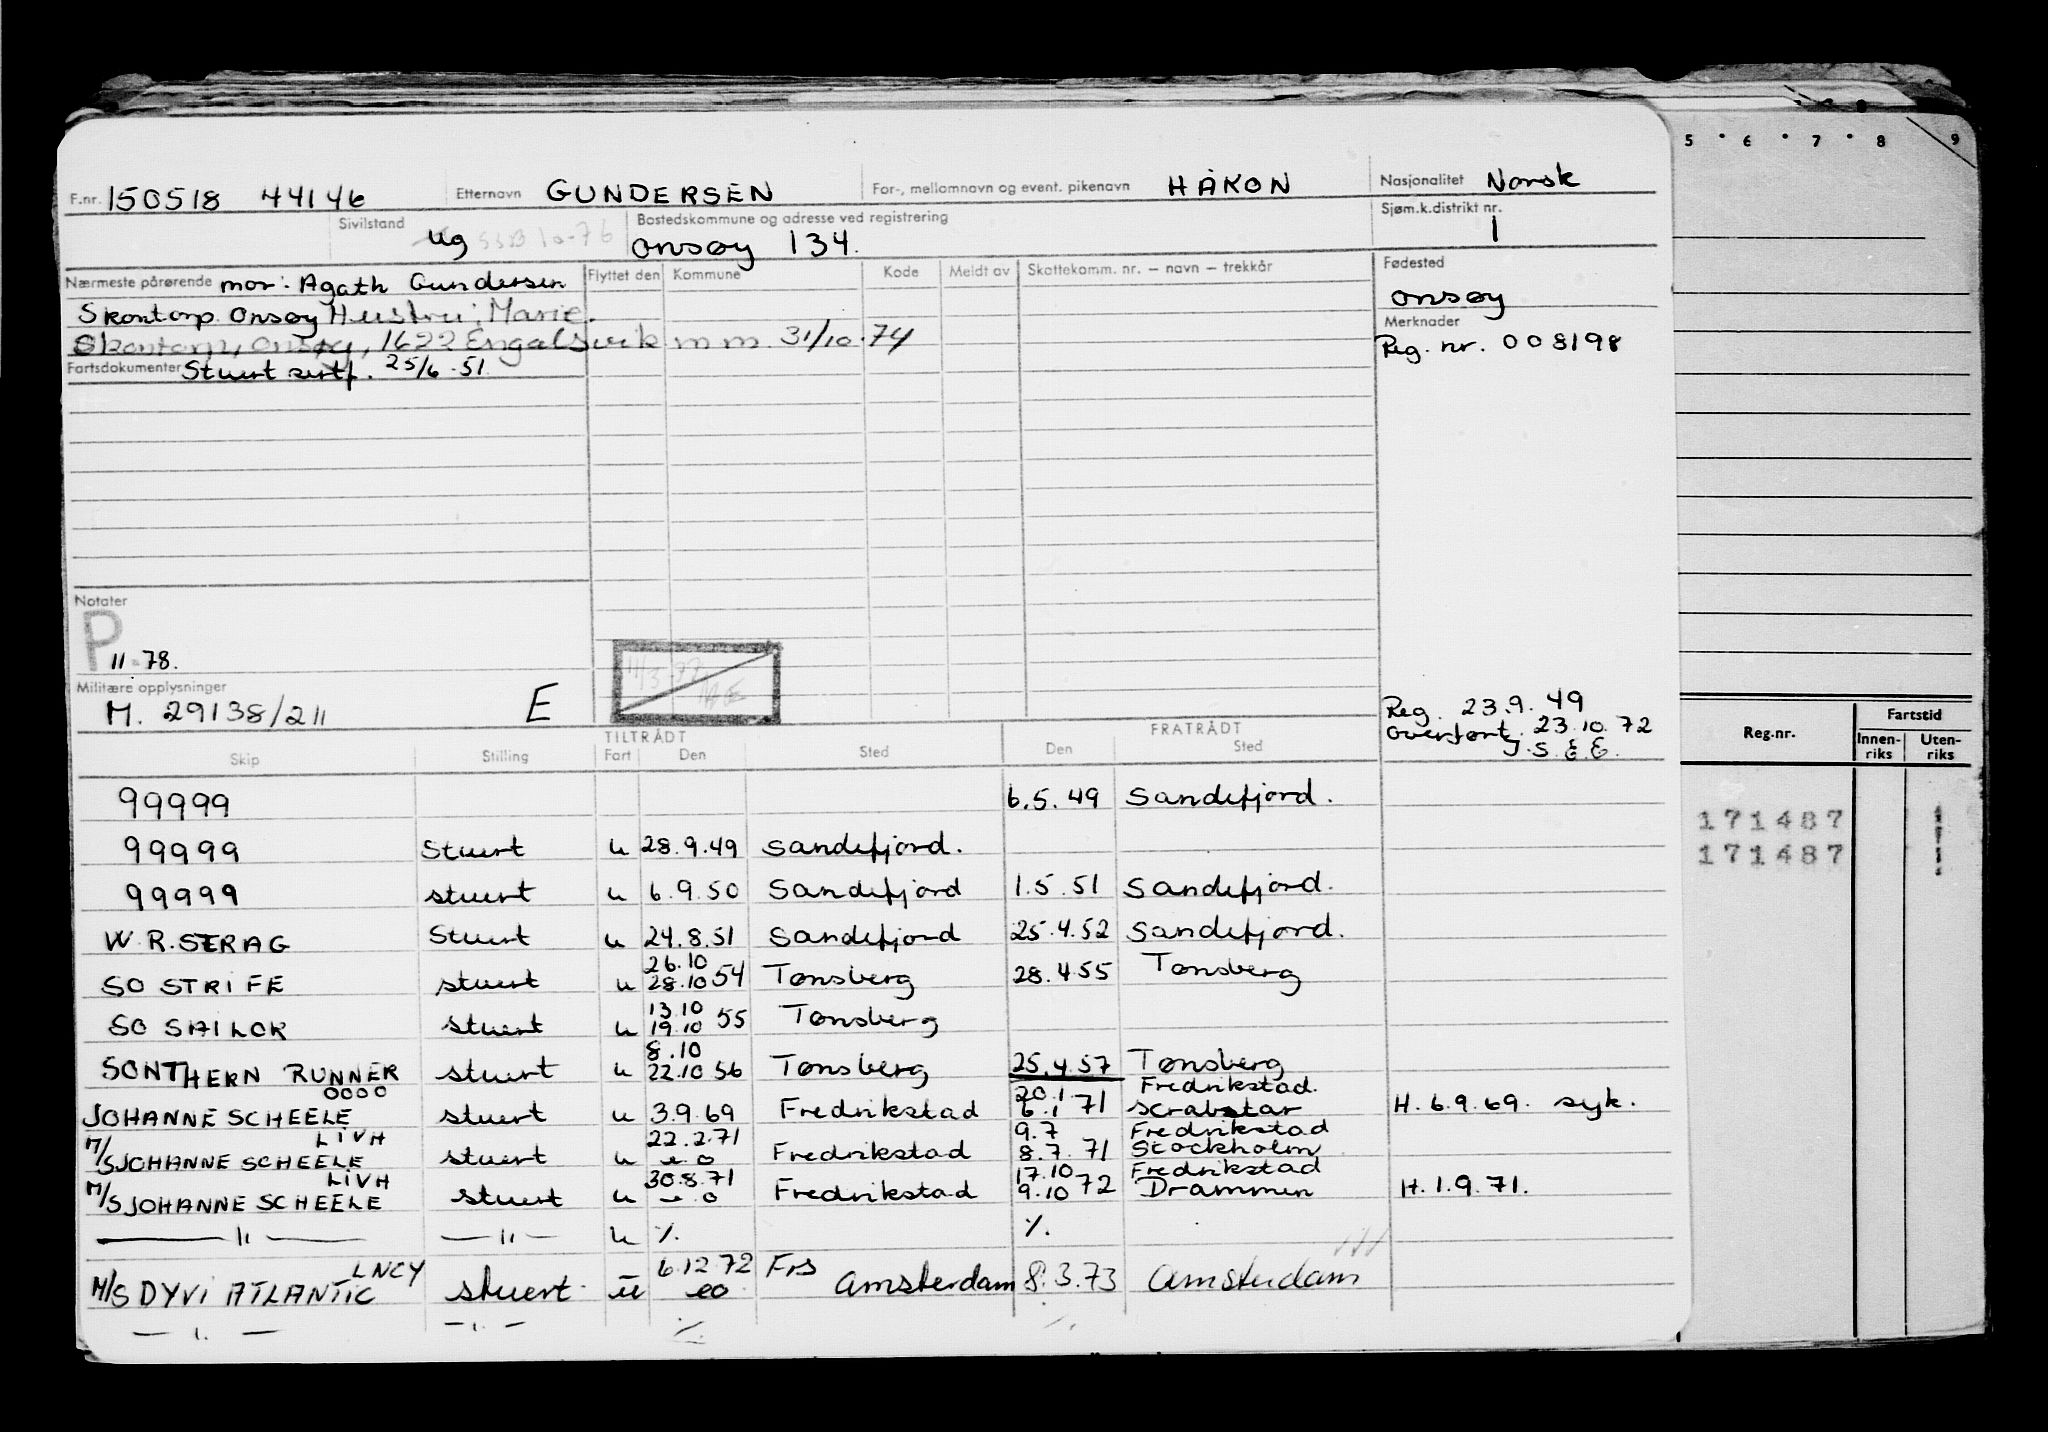 5 · 6 · 7 · 8 9
F.nr. 150518 44146 Etternavn GUNDERSEN For-, mellomnavn og event. pikenavn HÅKON Nasjonalitet Norsk
Sivilstand ug SSB 10-76 Bostedskommune og adresse ved registrering onsøy 134. Sjøm.k.distrikt nr. 1
Nærmeste pårørende mor: Agath Gundersen Flyttet den Kommune Kode Meldt av Skattekomm. nr. – navn – trekkår Fødested
Skontorp onsøy Hustru: Marie. onsøy
Skontorp, onsøy, 1622 Engalsvik m m. 31/10-74 Merknader
Fartsdokumenter Stuert sertf. 25/6-51 Reg. nr. 008198
Notater
P
11-78.
Militære opplysninger
M. 29138/211 E
Reg. 23.9.49
overført. 23.10.72
J.S.E.E.
TILTRÅDT FRATRÅDT
Skip Stilling Fart Den Sted Den Sted
Reg.nr. Fartstid
Innen-riks Uten-riks
99999 6.5.49 Sandefjord.
171487 1
99999 Stuert u 28.9.49 Sandefjord.
171487 1
99999 stuert u 6.9.50 Sandefjord 1.5.51 Sandefjord.
W.R.STRAG Stuert u 24.8.51 Sandefjord 25.4.52 Sandefjord.
26.10
SO STRIFE stuert u 28.10 54 Tønsberg 28.4.55 Tønsberg
13.10
SO SAILOR stuert u 19.10 55 Tønsberg
8.10
SONTHERN RUNNER stuert u 22.10 56 Tønsberg 25.4.57 Tønsberg
OOOO 20.1 Fredrikstad.
JOHANNE SCHEELE stuert u 3.9.69 Fredrikstad 6.1 71 scrabstar H. 6.9.69. syk.
LIVH 22.2.71 9.7 Fredrikstad
M/S JOHANNE SCHEELE stuert u e.o Fredrikstad 8.7.71 Stockholm
LIVH 30.8.71 17.10 Fredrikstad
M/S JOHANNE SCHEELE stuert u e.o Fredrikstad 9.10 72 Drammen H. 1.9.71.
— " — — " — u %. %.
LNCY 6.12.72 Frs
M/S DYVI ATLANTIC stuert u eo Amsterdam 8.3.73 Amsterdam
— " — — " — %. %.